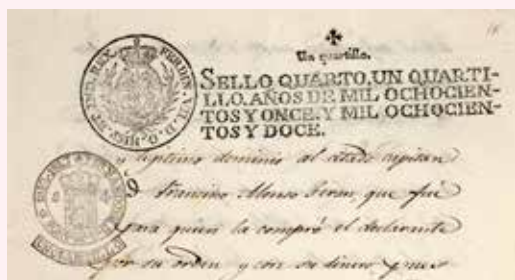 Un quartillo.
FERDIN. VII. D. G. HISP. ET IND. REX.
SELLO QUARTO, UN QUARTI-
LLO, AÑOS DE MIL OCHOCIEN-
TOS Y ONCE, Y MIL OCHOCIEN-
TOS Y DOCE.
y dominio al citado capitan
Francisco Alonso Teran, que fué
para quien la compró el declarante
por su orden y con su dinero pues